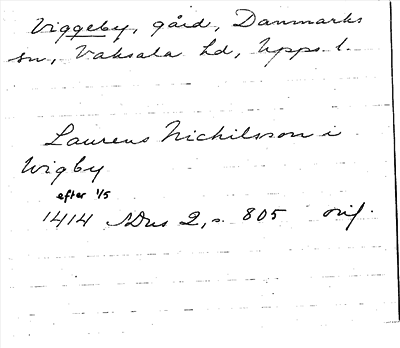 Viggeby, gård, Danmarks
sn, Vaksala hd, Upps. l.
Laurens Nichilsson i
Wigby
efter 1/5
1414 SDns 2, s. 805 orig.